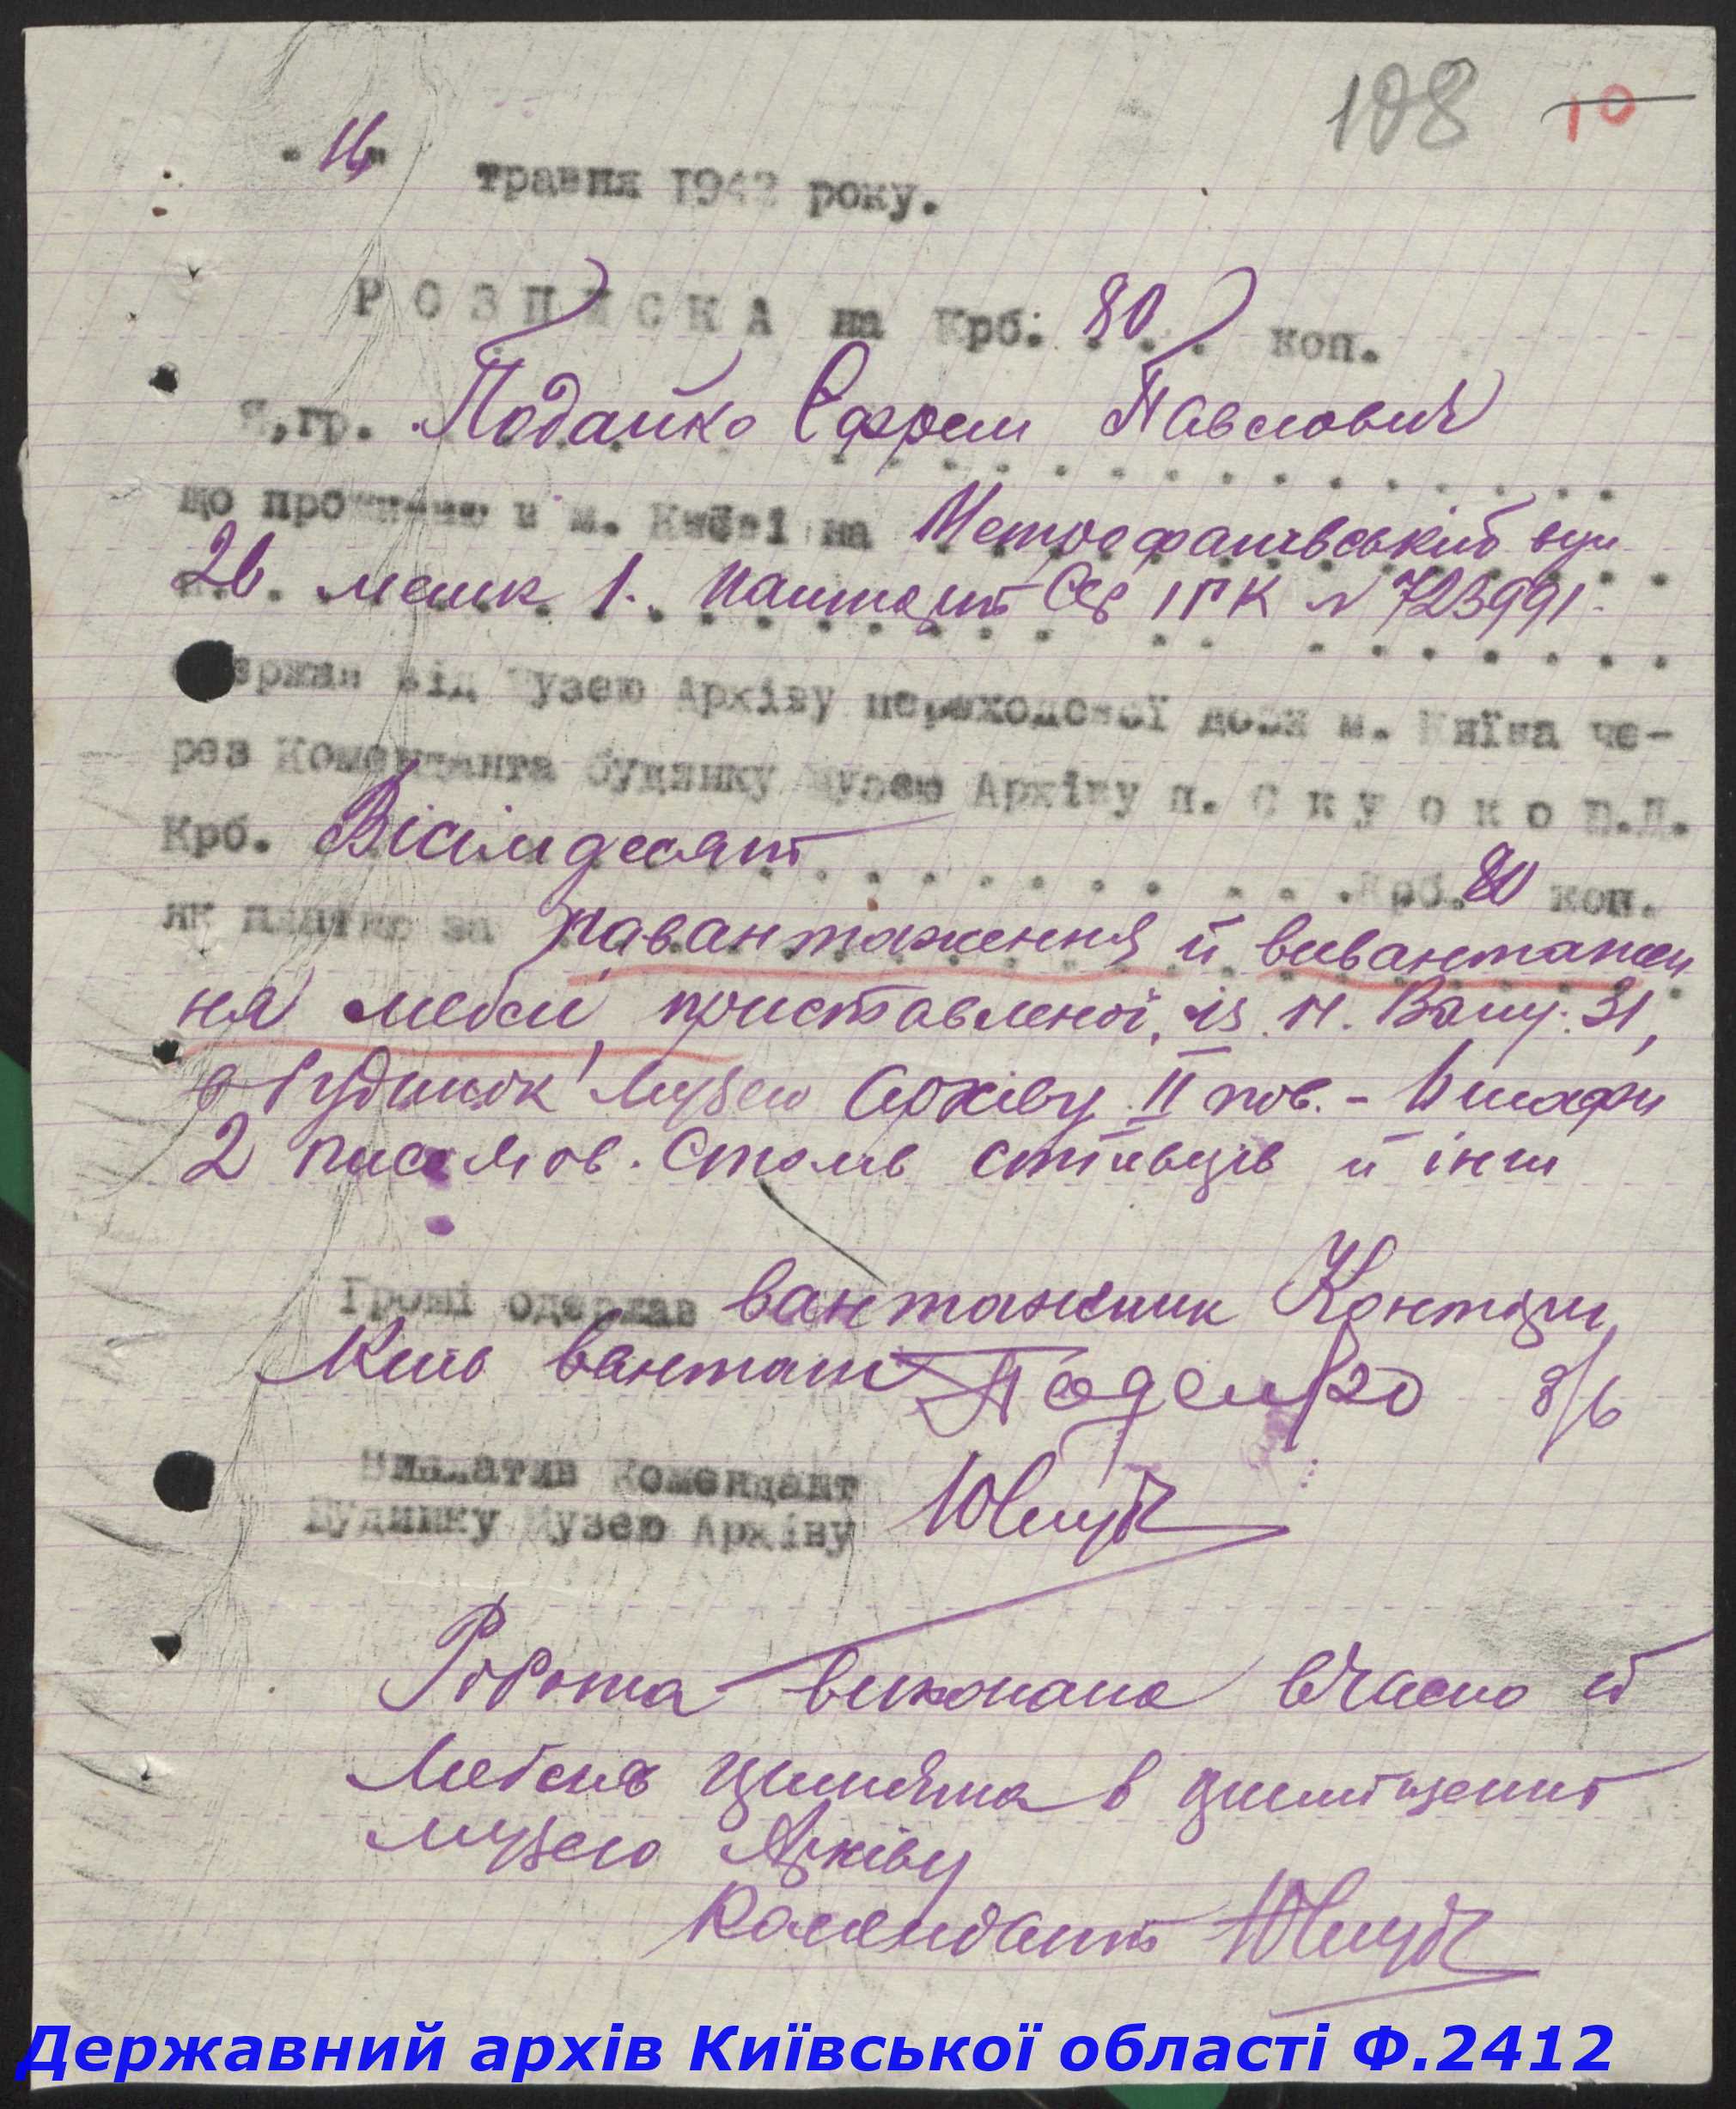 108 10
"16" травня 1942 року.
РОЗПИСКА на Крб. 80 . . коп.
Я,гр. Подайко Єфрем Павлович
що проживаю в м. Києві на Метрофанівській вул
26. мешк 1. пашпорт Сер ІГК № 723991.
одержав від Музею Архіву переходової доби м. Київа че-
рез Коменданта будинку Музею Архіву п. С к у о к о П.Д.
Крб. Вісімдесят . . . . . . . . . . Крб. 80 коп.
як платню за навантаження й вивантажен
ня меблі, приставленої, із 31,
в будинок Музею Архіву ІІ пов. - шафи
2 столів стільців й інш
Гроші одержав вантажник
Виплатив Комендант
Будинку Музею Архіву
Робота виконана вчасно й
меблія прийнята в приміщенні
музею Архіву
Комендант
Державний архів Київської області Ф.2412